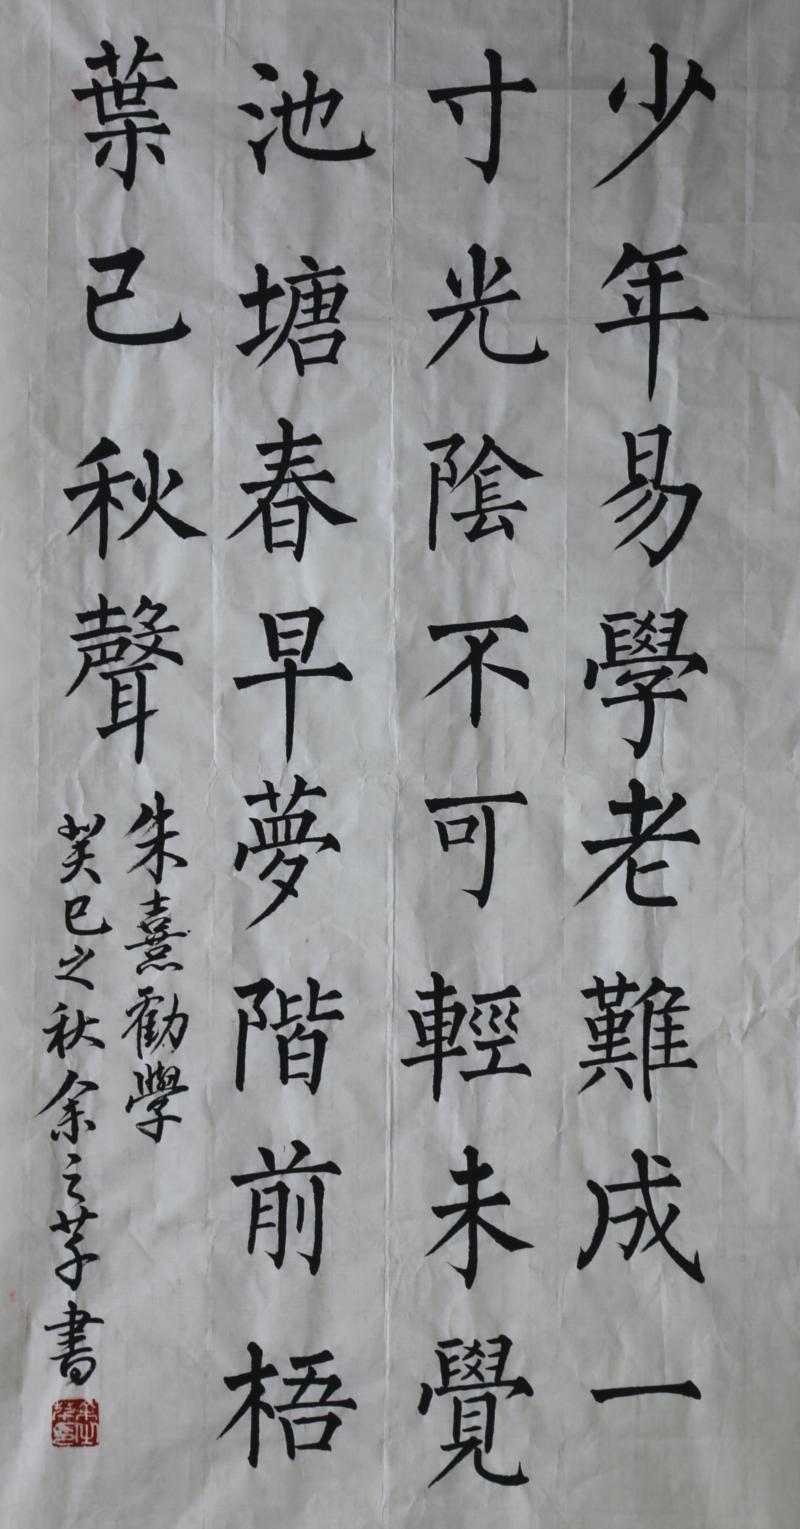 少年易學老難成一
寸光陰不可輕未覺
池塘春早夢階前梧
葉已秋聲
朱熹勸學
癸巳之秋余之芓書